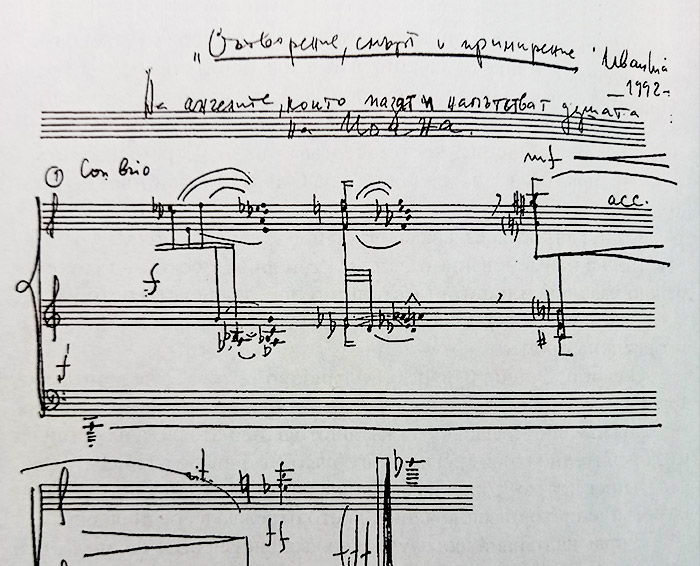 „Сътворение, смърт и примирение"
1992
На ангелите, които пазят и напътстват душата
на Йоана
mf
① Con brio
acc.
f
f
ff